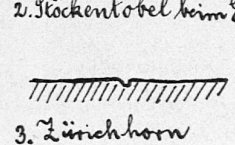 2. Stockentobel beim
3. Zürichhorn